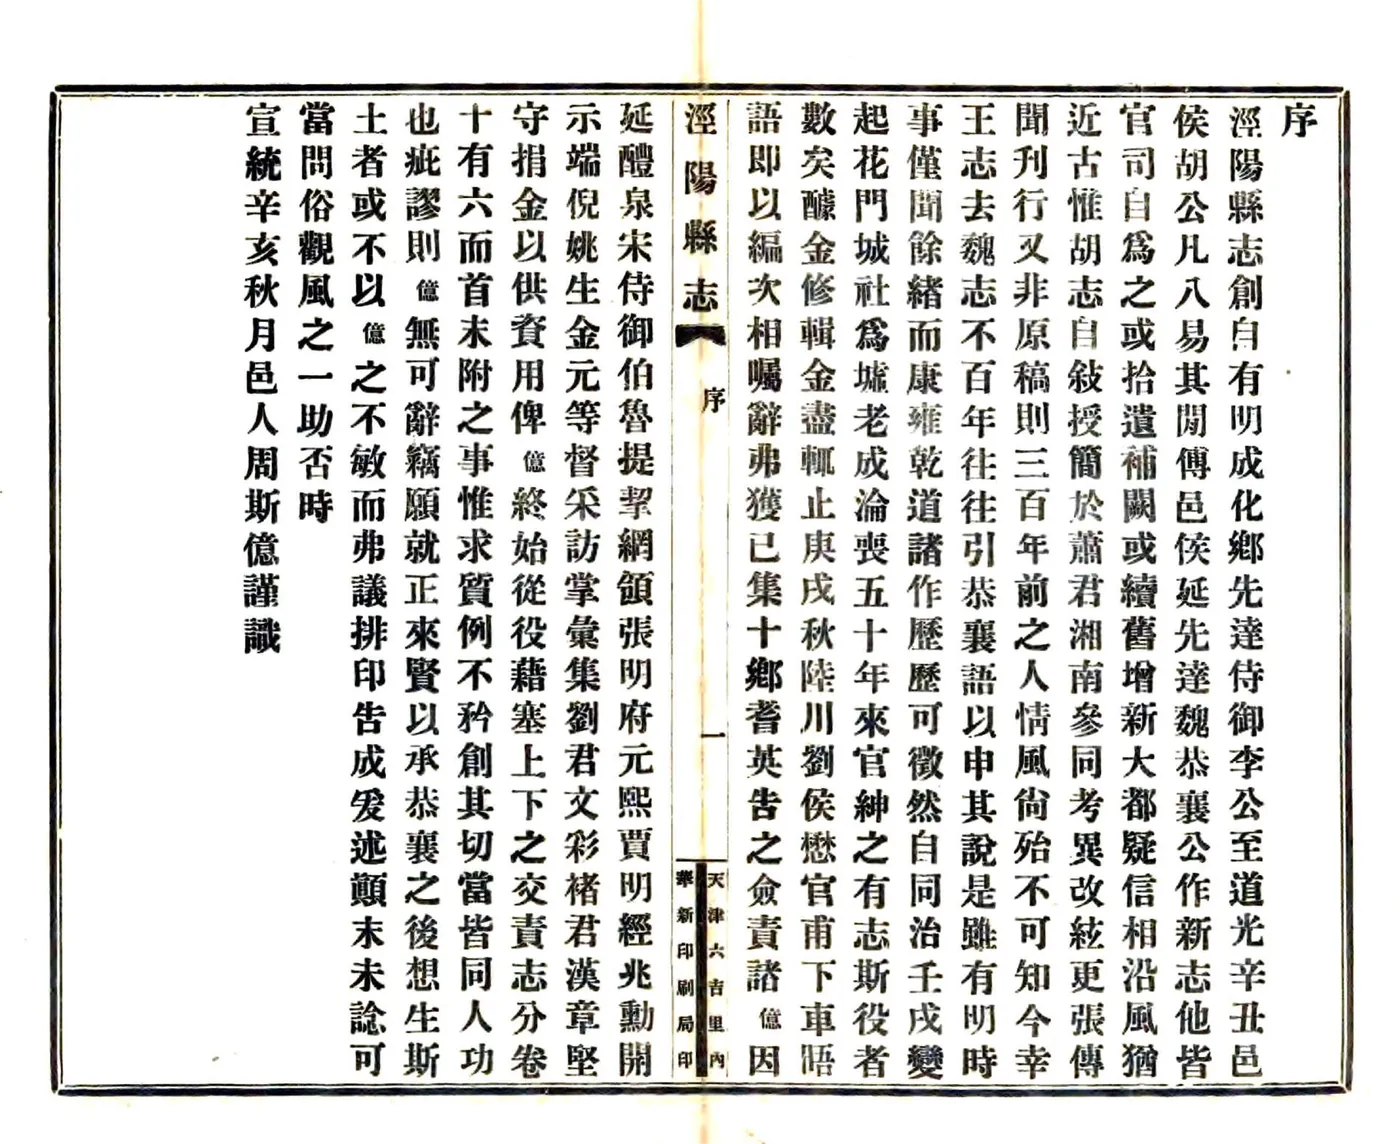 序
涇陽縣志創自有明成化鄉先達侍御李公至道光辛丑邑
侯胡公凡八易其閒傳邑侯延先達魏恭襄公作新志他皆
官司自爲之或拾遺補闕或續舊增新大都疑信相沿風猶
近古惟胡志自敍授簡於蕭君湘南參同考異改絃更張傳
聞刊行又非原稿則三百年前之人情風尙殆不可知今幸
王志去魏志不百年往往引恭襄語以申其說是雖有明時
事僅聞餘緒而康雍乾道諸作歷歷可徵然自同治壬戌變
起花門城社爲墟老成淪喪五十年來官紳之有志斯役者
數矣醵金修輯金盡輒止庚戌秋陸川劉侯懋官甫下車晤
語即以編次相囑辭弗獲已集十鄉耆英告之僉責諸億因
涇陽縣志
序
一
天津六吉里內
華新印刷局印
延醴泉宋侍御伯魯提挈網領張明府元熙賈明經兆勳開
示端倪姚生金元等督采訪掌彙集劉君文彩褚君漢章堅
守捐金以供資用俾億終始從役藉塞上下之交責志分卷
十有六而首末附之事惟求質例不矜創其切當皆同人功
也疵謬則億無可辭竊願就正來賢以承恭襄之後想生斯
土者或不以億之不敏而弗議排印告成爰述顚末未諗可
當問俗觀風之一助否時
宣統辛亥秋月邑人周斯億謹識